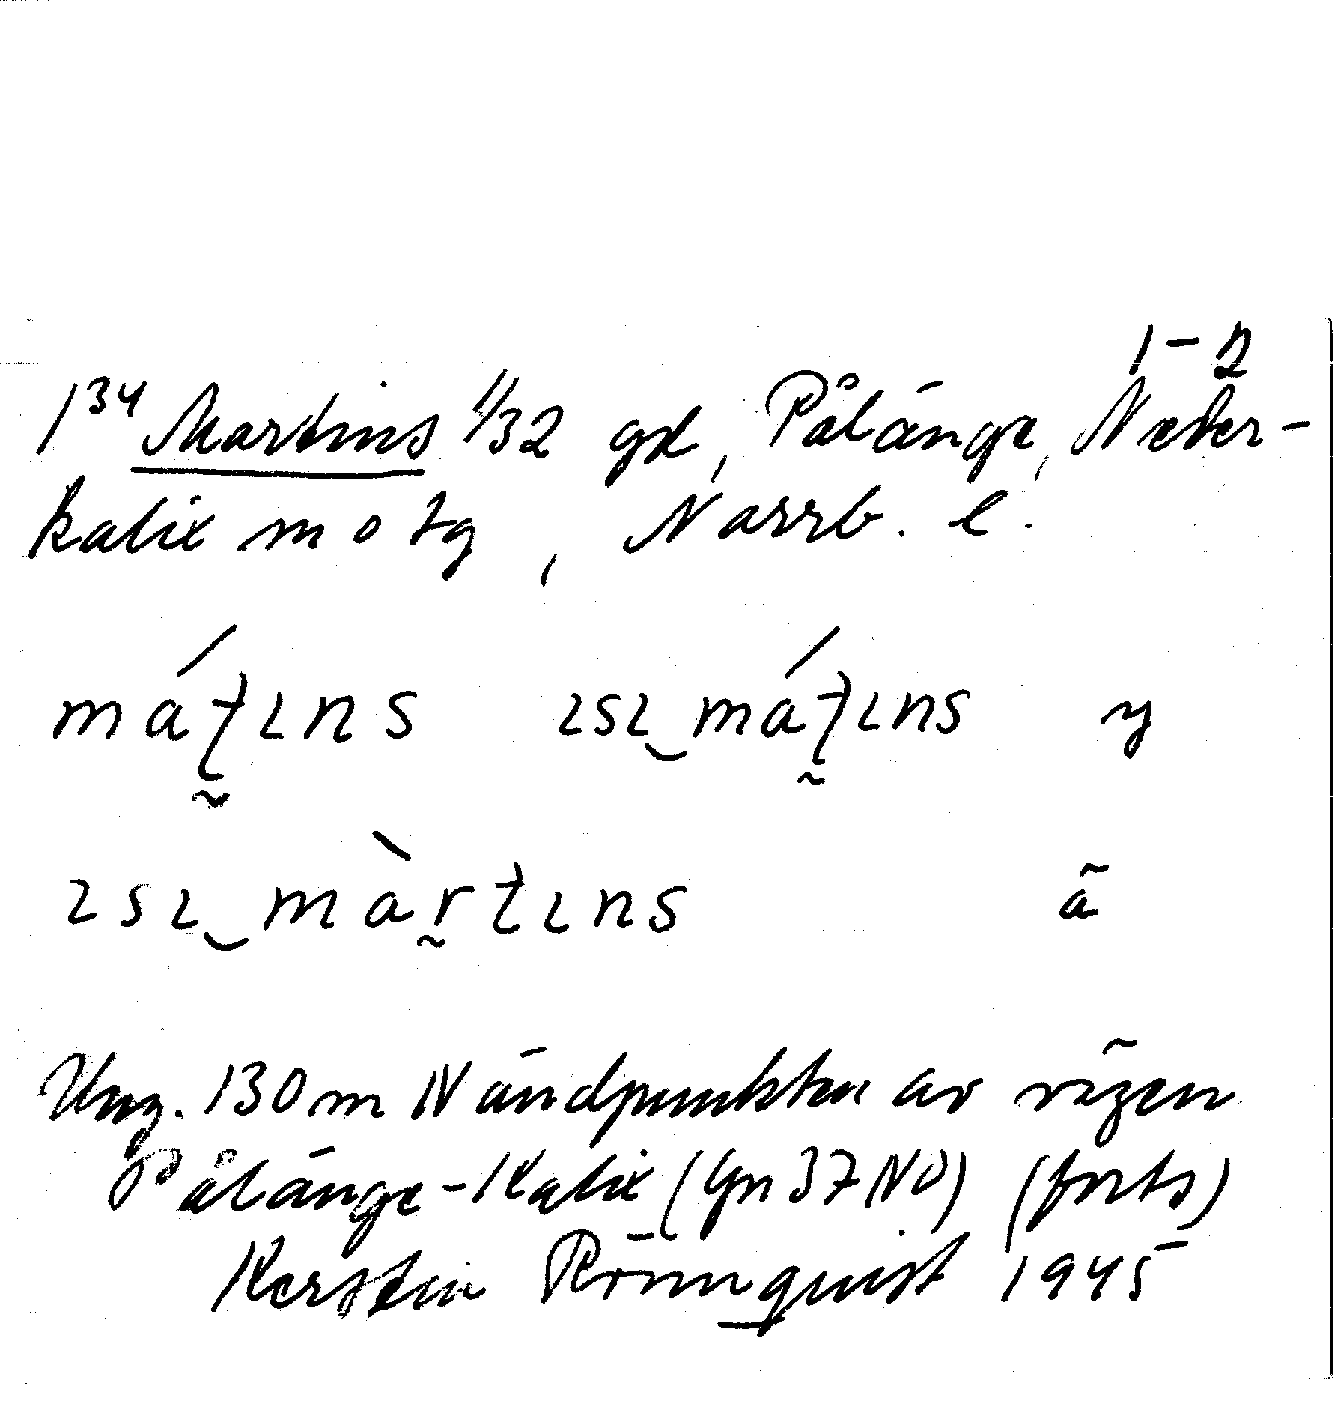 1-2
1³⁴ Martins 1/32 gd, Pålänge, Neder-
kalix m o tg, Norrb. l.
má̀ʈɩns ɩsɩ‿máʈɩns y
ɩsɩ‿màrtɩns ä
Ung. 130 m N ändpunkten av vägen
Pålänge-Kalix (Gn 37 NO) (forts)
Kerstin Rönnquist 1945